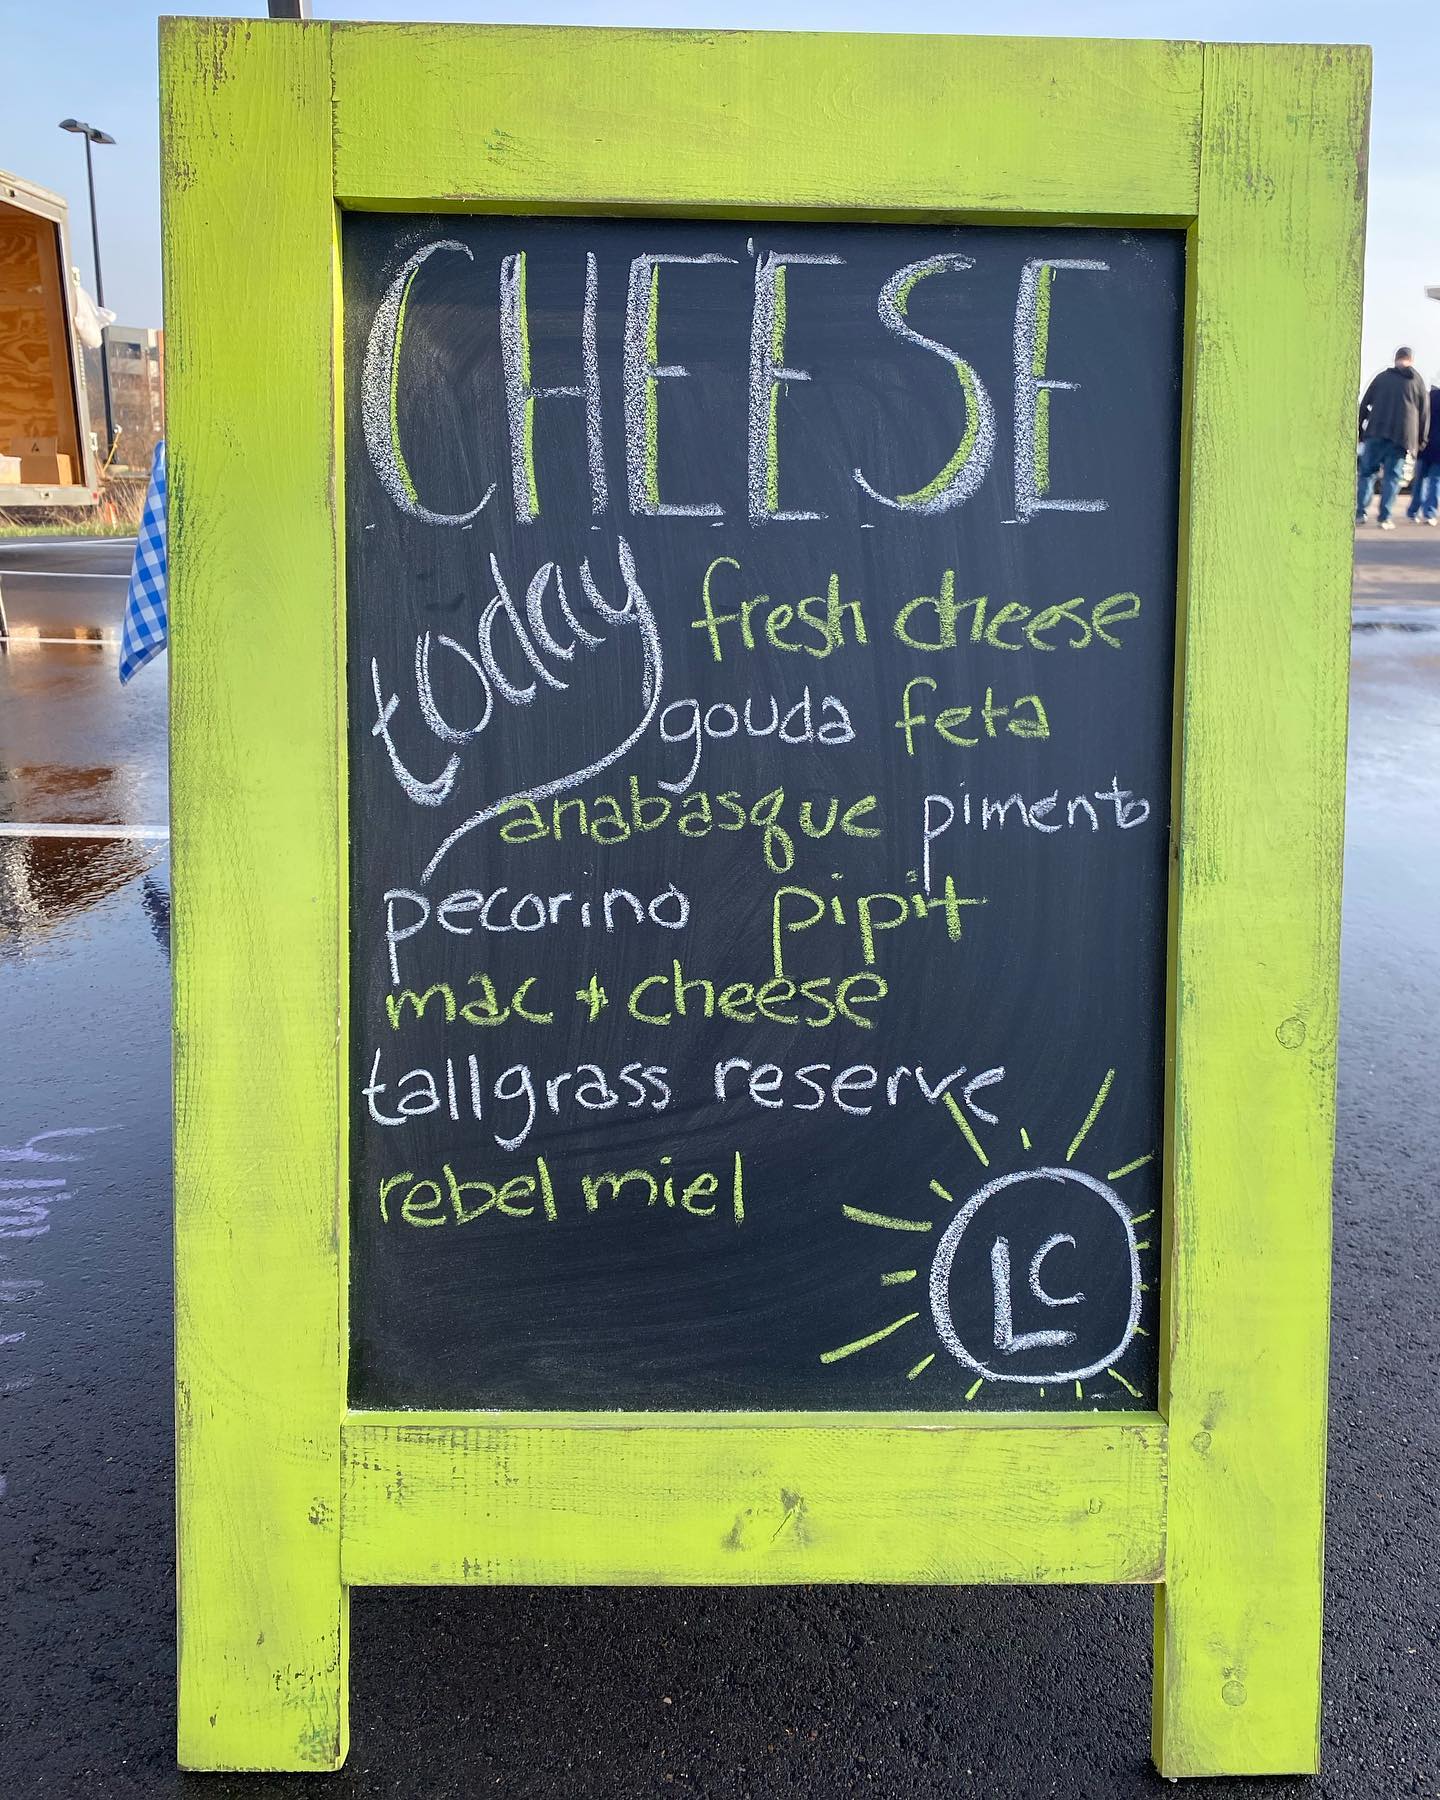 CHEESE
today fresh cheese
gouda feta
anabasque pimento
pecorino pipit
mac + cheese
tallgrass reserve
rebel miel
LC